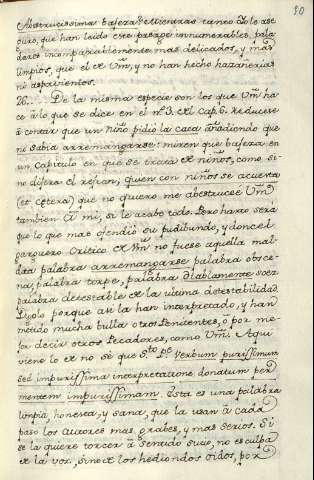 80
Abstrusissima bajeza de
que han leido este pasage innumerables, pala-
deros incomparablemente mas delicados, y mas
limpios, que el de Vm., y no han hecho hazañerias
ni aspavientos.
26. De la misma especie son los que Vm. ha-
ce à lo que se dice en el n.º 3. del Cap. 6. reducese
à contar que un niño pidiò la caca añadiendo que
no sabia arremangarse: miren que bajeza en
un capitulo en que se trata de niños, como si
no dijera el refran, quien con niños se acuesta
(et cetera) que no quiero me
tambien à mi, si le acabo todo. Pero harto será
que lo que mas ofendiò su pudibundo, y
Critico de Vm. no fuese aquella mal-
dita palabra arremangarse palabra obsce-
na, palabra torpe, palabra diablamente soez
palabra detestable de la ultima detestabilidad.
Digolo porque asi la han interpretado, y han
metido mucha bulla otros Penitentes, ò por me-
jor decir otros Pecadores, como Vm. Aqui
viene lo de no sè que S.to P.e Verbum purissimum
sed impurissima interpretatione donatum per
mentem impurissimam. Esta es una palabra
limpia, honesta, y sana, que la usan à cada
paso los Autores mas graves, y mas serios. Si
se la quiere torcer à sentido sucio, no es culpa
de la voz, sino de los hediondos oidos, por